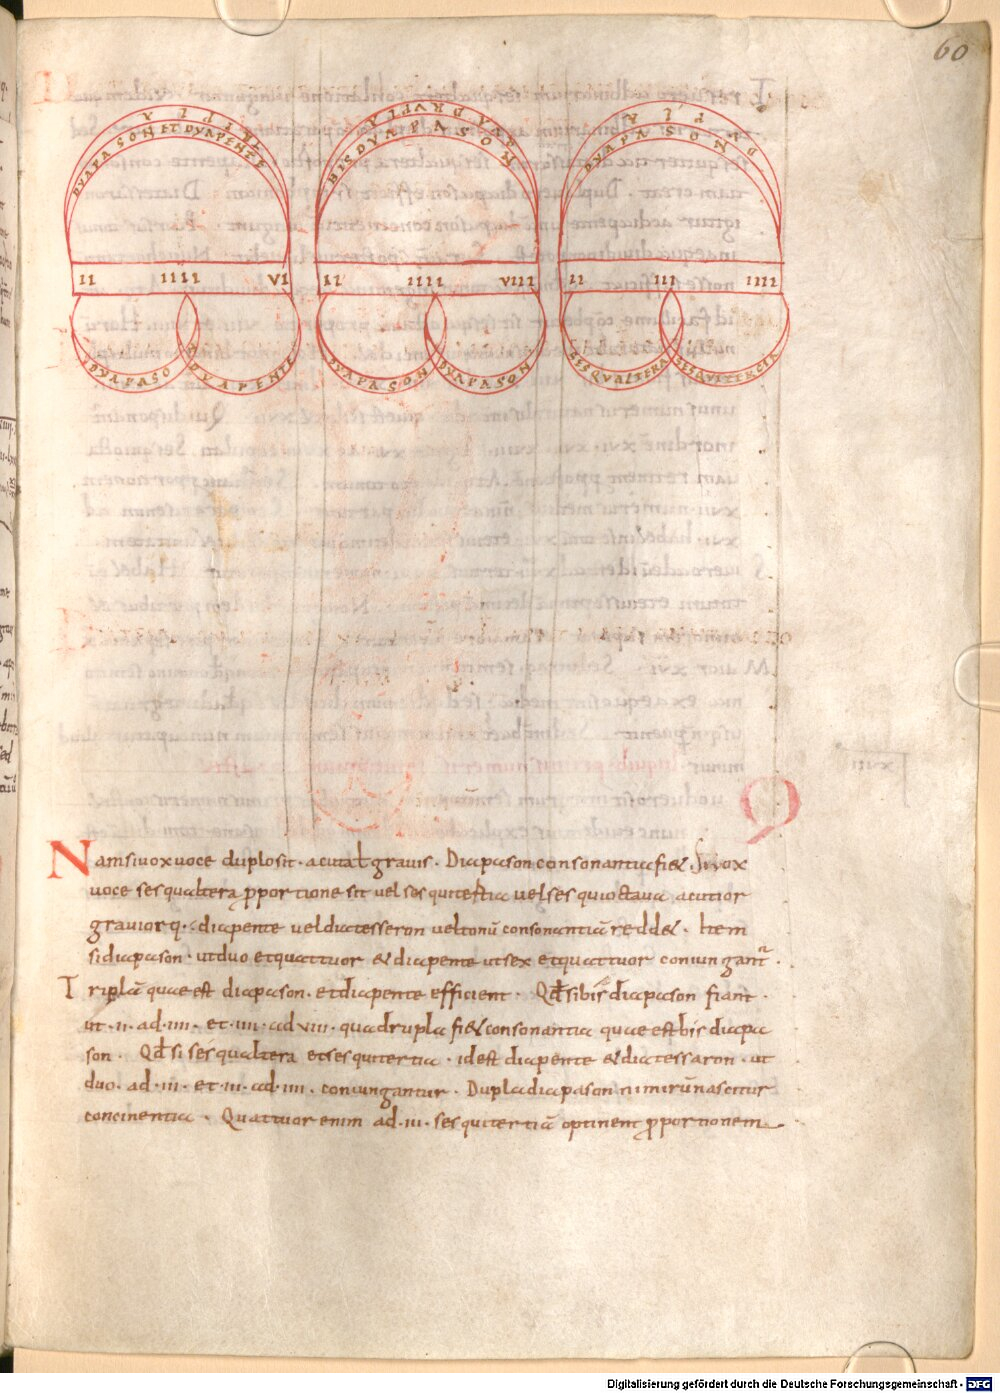 60
TRIPLA
DYAPASON ET DYAPENTE
QVADRVPLA
BIS DYAPASON
DVPLA
DYAPASON
II IIII VI
II IIII VIII
II III IIII
DYAPASO DYAPENTE
DYAPASON DYAPASON
SESQVALTERA SESQVITERCIA
Nam si vox voce duplo sit · acuta ł gravis · Diapason consonantia fi& Si vox
voce sesqualtera pportione sit vel sesquitertia vel sesquioctava acutior
graviorq · diapente vel diatesseron vel tonū consonantiā redd& · Item
si diapason · ut duo et quattuor & diapente ut sex et quattuor coniungant ·
Triplā quae est diapason · et diapente efficient · Qđ si bis diapason fiant ·
ut · ii · ad · iiii · et · iiii · ad viii · quadrupla fi& consonantia quae est bis diapa
son · Qđ si sesqualtera et sesquitertia · id est diapente & diatessaron · ut
duo · ad · iii · et · iii · ad · iiii · coniungantur · Dupla diapason nimirū nascitur
concinentia · Quattuor enim ad · iii · sesquitertiā optinent pportionem
Digitalisierung gefördert durch die Deutsche Forschungsgemeinschaft - DFG